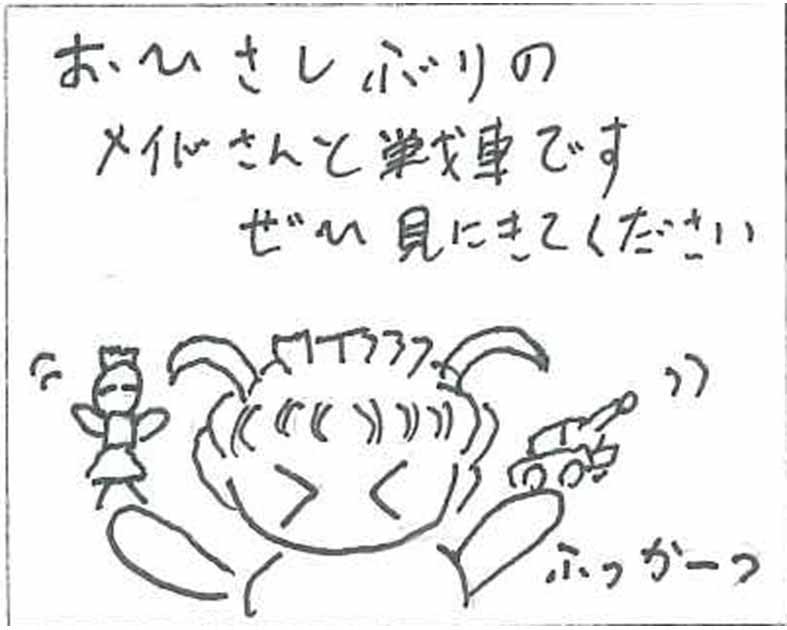 おひさしぶりの
メイドさんと戦車です
ぜひ見にきてください
ふっかーつ